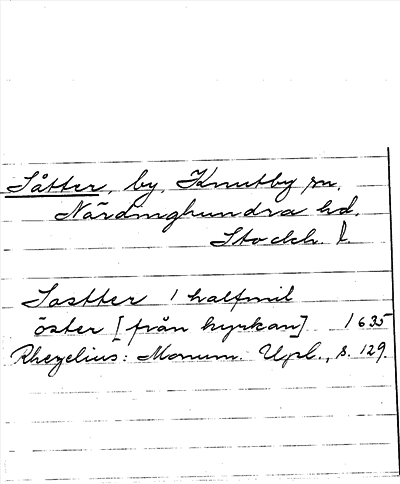 Såtter, by, Knutby sn,
Närdinghundra hd.
Stockh. l.
Sastter 1 halfmil
öster [från kyrkan] 1635
Rhezelius: Monum. Upl., s. 129.